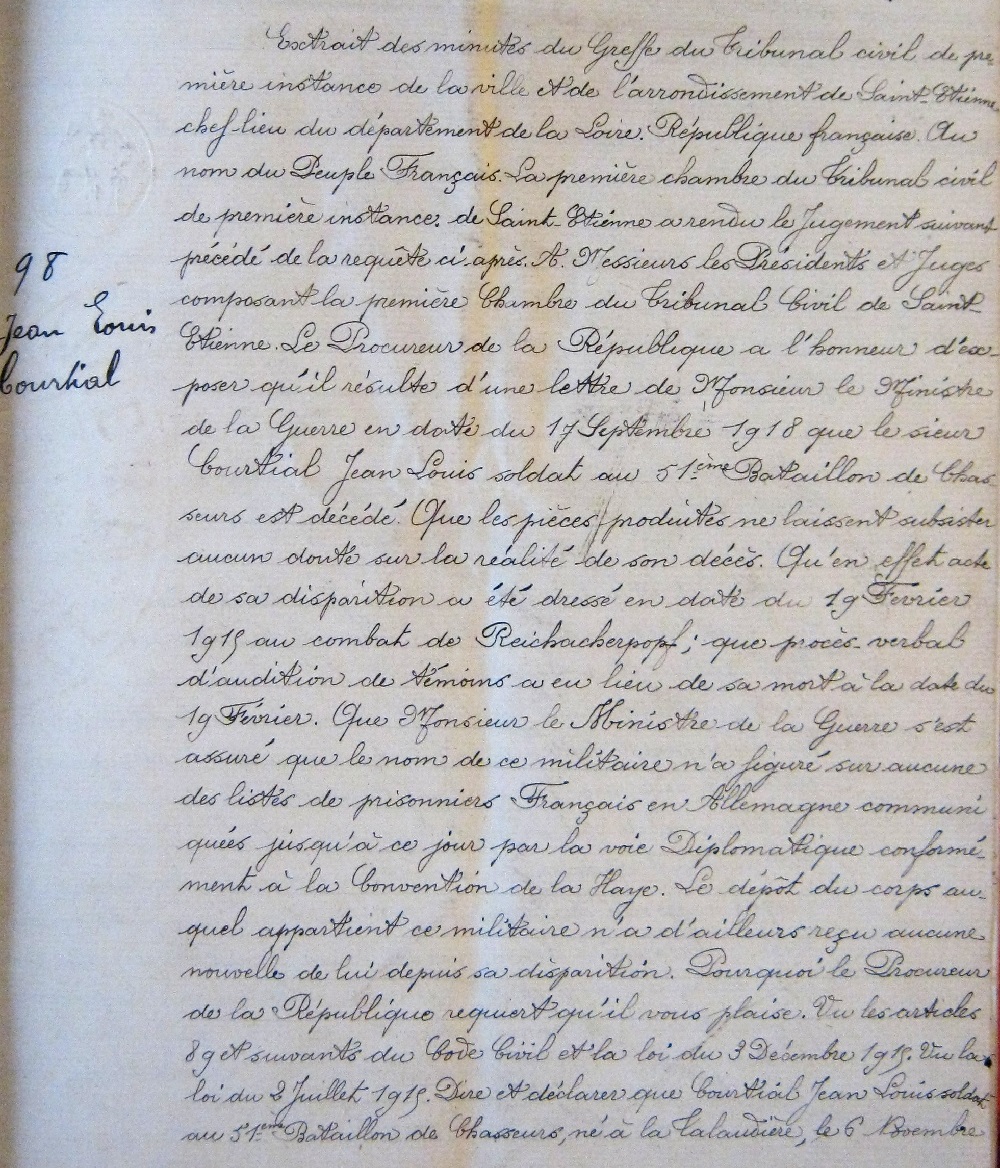 98
Jean Louis
Courtial
Extrait des minutes du Greffe du Tribunal civil de pre
mière instance de la ville et de l'arrondissement de Saint-Etienne
chef-lieu du département de la Loire. République française. Au
nom du Peuple Français. La première chambre du Tribunal civil
de première instance. de Saint-Etienne a rendu le Jugement suivant
précédé de la requête ci-après. A. Messieurs les Présidents et Juges
composant la première Chambre du Tribunal Civil de Saint-
Etienne. Le Procureur de la République a l'honneur d'ex-
poser qu'il résulte d'une lettre de Monsieur le Ministre
de la Guerre en date du 17 Septembre 1918 que le sieur
Courtial Jean Louis soldat au 51ème Bataillon de Chas-
seurs est décédé. Que les pièces produites ne laissent subsister
aucun doute sur la réalité de son décès. Qu'en effet acte
de sa disparition a été dressé en date du 19 Fevrier
1915 au combat de Reichacherpopf; que procès-verbal
d'audition de témoins a eu lieu de sa mort à la date du
19 Février. Que Monsieur le Ministre de la Guerre s'est
assuré que le nom de ce militaire n'a figuré sur aucune
des listes de prisonniers Français en Allemagne communi
quées jusqu'à ce jour par la voie Diplomatique conformé-
ment à la Convention de la Haye. Le dépôt du corps au-
quel appartient ce militaire n'a d'ailleurs reçu aucune
nouvelle de lui depuis sa disparition. Pourquoi le Procureur
de la République requiert qu'il vous plaise. Vu les articles
89 et suivants du Code Civil et la loi du 3 Décembre 1915. Vu la
loi du 2 Juillet 1915. Dire et déclarer que Courtial Jean Louis soldat
au 51ème Bataillon de Chasseurs, né à la Talaudière, le 6 Noembre